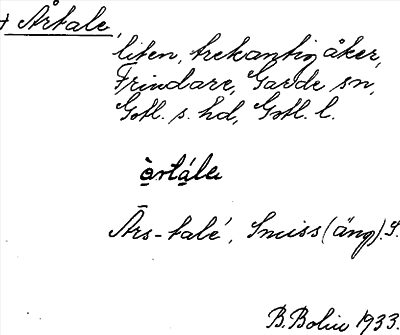 + Årtale,
liten, trekantig åker,
Frindare, Garde sn,
Gotl. s. hd, Gotl. l.
àrtále
Års-talé, Smiss (äng). S.
B. Bolin 1933.